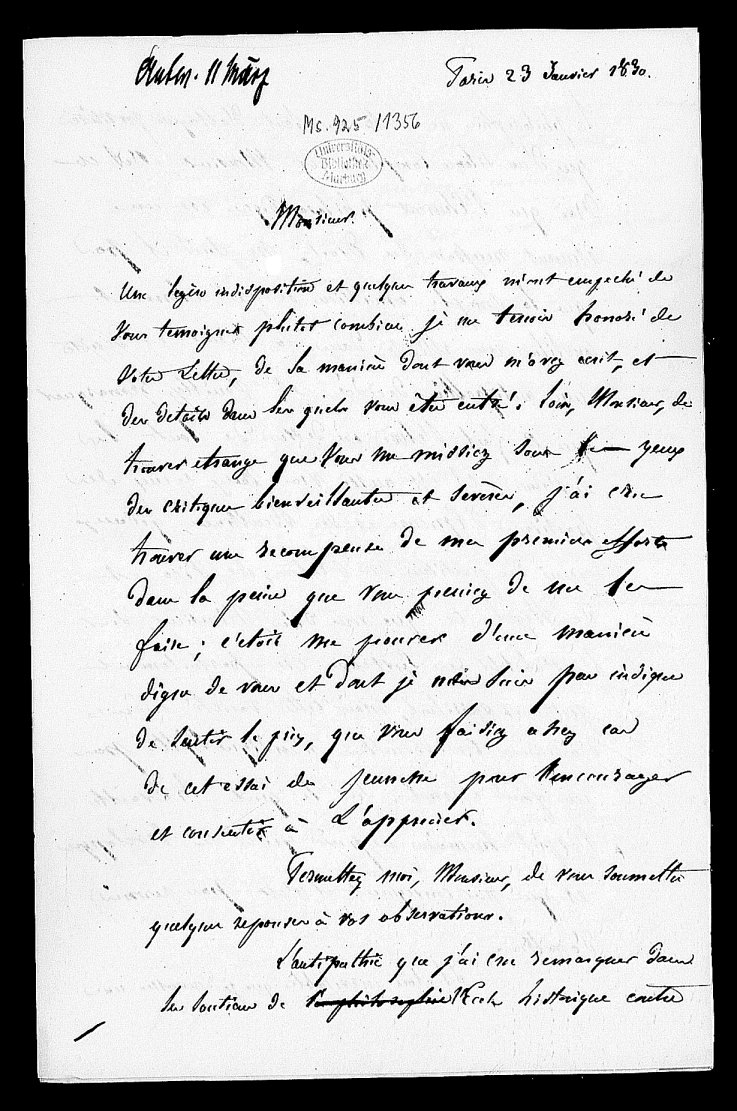 Antw. 11 März
Paris 23 Janvier 1830.
Ms. 925/1356
Universitäts-
Bibliothek
Marburg
Monsieur.
Une légère indisposition et quelques travaux m'ont empeché de
Vous temoigner plutot combien je me tenois honoré de
Votre Lettre, de la manière dont vous m'avez ecrit, et
des details dans les quels vous êtes entré: loin, Monsieur, de
trouver etrange que Vous me missiez sous les yeux
des critiques bienveillantes et severes, j'ai cru
trouver une recompense de mes premiers efforts
dans la peine que Vous preniez de me les
faire; c'etoit me prouver d'une manière
digne de vous et dont je ne suis pas indigne
de sentir le prix, que Vous faisiez assez cas
de cet essai de jeunesse pour l'encourager
et consentir à L'apprecier.
Permettez moi, Monsieur, de vous soumettre
quelques reponses à vos observations.
L'antipathie que j'ai cru remarquer dans
les soutiens de l'Ecole historique contre